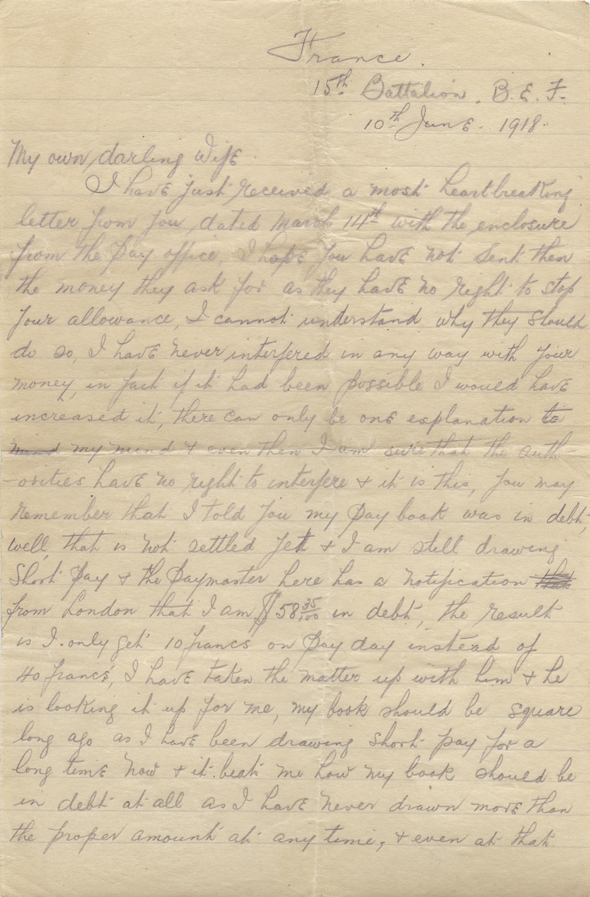 France.
15th Battalion. B.E.F.
10th June. 1918.
My own darling Wife
I have just received a most heartbreaking
letter from you, dated March 14th with the enclosure
from the Pay office, I hope you have not sent them
the money they ask for as they have no right to stop
your allowance, I cannot understand why they should
do so, I have never interfered in any way with your
money, in fact if it had been possible I would have
increased it, there can only be one explanation to
my mind & even then I am sure that the auth
-orities have no right to interfere & it is this, you may
remember that I told you my Pay book was in debt,
well, that is not settled yet & I am still drawing
short pay & the Paymaster here has a notification
from London that I am $58 35/100 in debt, the result
is I only get 10 francs on Pay day instead of
40 francs, I have taken the matter up with him & he
is looking it up for me, my book should be square
long ago as I have been drawing short pay for a
long time now & it beats me how my book should be
in debt at all as I have never drawn more than
the proper amount at any time, & even at that